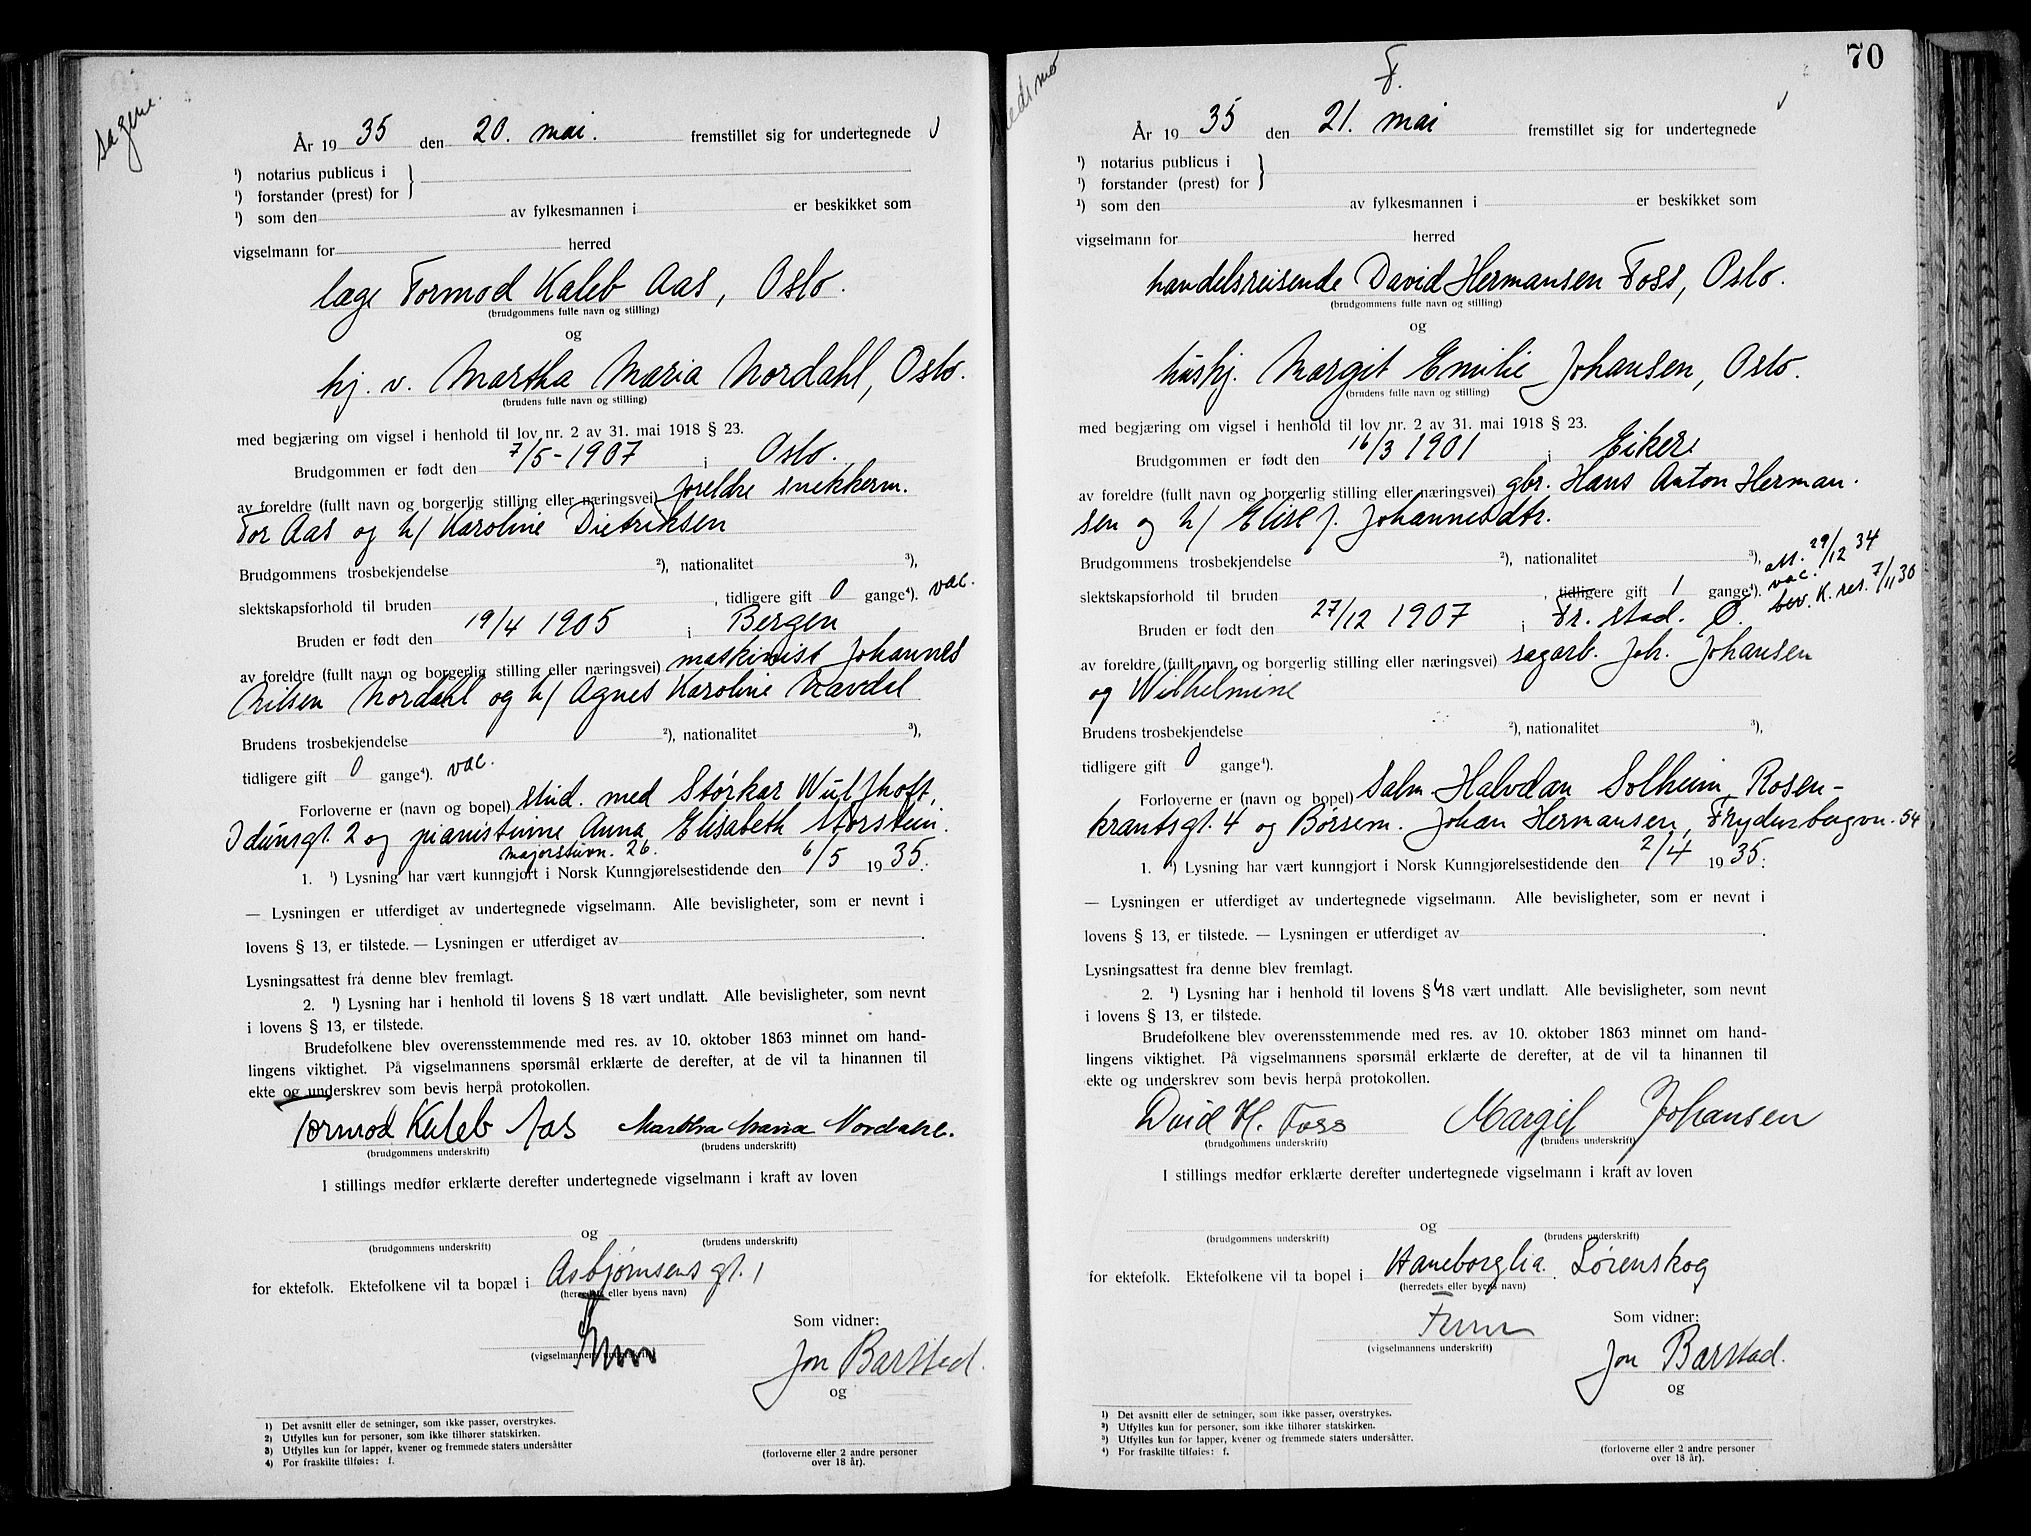 Sagene.
År 1935 den 20. mai. fremstillet sig for undertegnede
¹) notarius publicus i
¹) forstander (prest) for
¹) som den av fylkesmannen i er beskikket som
vigselmann for herred
læge Tormod Kaleb Aas, Oslo.
(brudgommens fulle navn og stilling)
og
hj. v. Martha Maria Nordahl, Oslo.
(brudens fulle navn og stilling)
med begjæring om vigsel i henhold til lov nr. 2 av 31. mai 1918 § 23.
Brudgommen er født den 7/5-1907 i Oslo.
av foreldre (fullt navn og borgerlig stilling eller næringsvei) foreldre snekkerm.
Tor Aas og h/ Karoline Dietriksen
Brudgommens trosbekjendelse ²), nationalitet ³),
slektskapsforhold til bruden , tidligere gift 0 gange⁴). vac.
Bruden er født den 19/4 1905 i Bergen
av foreldre (fullt navn og borgerlig stilling eller næringsvei) maskinist Johannes
Nilsen Nordahl og h/ Agnes Karoline Navdal
Brudens trosbekjendelse ²), nationalitet ³),
tidligere gift 0 gange⁴). vac.
Forloverne er (navn og bopel) stud. med Størkar Wulfhoft,
Idunsgt. 2 og pianistinne Anna Elisabeth Storstein.
majorstuvn. 26.
1. ¹) Lysning har vært kunngjort i Norsk Kunngjørelsestidende den 6/5 1935.
— Lysningen er utferdiget av undertegnede vigselmann. Alle bevisligheter, som er nevnt i
lovens § 13, er tilstede. — Lysningen er utferdiget av .
Lysningsattest fra denne blev fremlagt.
2. ¹) Lysning har i henhold til lovens § 18 vært undlatt. Alle bevisligheter, som nevnt
i lovens § 13, er tilstede.
Brudefolkene blev overensstemmende med res. av 10. oktober 1863 minnet om hand-
lingens viktighet. På vigselmannens spørsmål erklærte de derefter, at de vil ta hinannen til
ekte og underskrev som bevis herpå protokollen.
Tormod Kaleb Aas Martha Maria Nordahl.
(brudgommens underskrift) (brudens underskrift)
I stillings medfør erklærte derefter undertegnede vigselmann i kraft av loven
og
(brudgommens underskrift) (brudens underskrift)
for ektefolk. Ektefolkene vil ta bopæl i Asbjørnsens gt. 1
(herredets eller byens navn)
Som vidner:
(vigselmannens underskrift)
Jon Barstad.
og
1) Det avsnitt eller de setninger, som ikke passer, overstrykes.
2) Utfylles kun for personer, som ikke tilhører statskirken.
3) Utfylles kun for lapper, kvener og fremmede staters undersåtter
4) For fraskilte tilføies: f.
(forloverne eller 2 andre personer
over 18 år).
70
F.
År 1935 den 21. mai fremstillet sig for undertegnede
¹) notarius publicus i
¹) forstander (prest) for
¹) som den av fylkesmannen i er beskikket som
vigselmann for herred
handelsreisende David Hermansen Foss, Oslo.
(brudgommens fulle navn og stilling)
og
hushj. Margit Emilie Johansen, Oslo.
(brudens fulle navn og stilling)
med begjæring om vigsel i henhold til lov nr. 2 av 31. mai 1918 § 23.
Brudgommen er født den 16/3 1901 i Eiker
av foreldre (fullt navn og borgerlig stilling eller næringsvei) gbr. Hans Anton Herman-
sen og h/ Elise J. Johannesdtr.
Brudgommens trosbekjendelse ²), nationalitet ³), att. 29/12 34
slektskapsforhold til bruden , tidligere gift 1 gange⁴). vac. bev. K. res. 7/11 30
Bruden er født den 27/12 1907 i Fr. stad. Ø.
av foreldre (fullt navn og borgerlig stilling eller næringsvei) sagarb. Joh. Johansen
og Wilhelmine
Brudens trosbekjendelse ²), nationalitet ³),
tidligere gift 0 gange⁴).
Forloverne er (navn og bopel) Salm. Halvdan Solheim, Rosen-
krantsgt. 4 og Børsem. Johan Hermansen, Frydenbergvn. 54
1. ¹) Lysning har vært kunngjort i Norsk Kunngjørelsestidende den 2/4 1935.
— Lysningen er utferdiget av undertegnede vigselmann. Alle bevisligheter, som er nevnt i
lovens § 13, er tilstede. — Lysningen er utferdiget av .
Lysningsattest fra denne blev fremlagt.
2. ¹) Lysning har i henhold til lovens § 18 vært undlatt. Alle bevisligheter, som nevnt
i lovens § 13, er tilstede.
Brudefolkene blev overensstemmende med res. av 10. oktober 1863 minnet om hand-
lingens viktighet. På vigselmannens spørsmål erklærte de derefter, at de vil ta hinannen til
ekte og underskrev som bevis herpå protokollen.
David H. Foss Margit Johansen
(brudgommens underskrift) (brudens underskrift)
I stillings medfør erklærte derefter undertegnede vigselmann i kraft av loven
og
(brudgommens underskrift) (brudens underskrift)
for ektefolk. Ektefolkene vil ta bopel i Haneborglia. Lørenskog
(herredets eller byens navn)
Som vidner:
(vigselmannens underskrift)
Jon Barstad.
og
¹) Det avsnitt eller de setninger, som ikke passer, overstrykes.
²) Utfylles kun for personer, som ikke tilhører statskirken.
³) Utfylles kun for lapper, kvener og fremmede staters undersåtter.
⁴) For fraskilte tilføies: f.
(forloverne eller 2 andre personer
over 18 år).